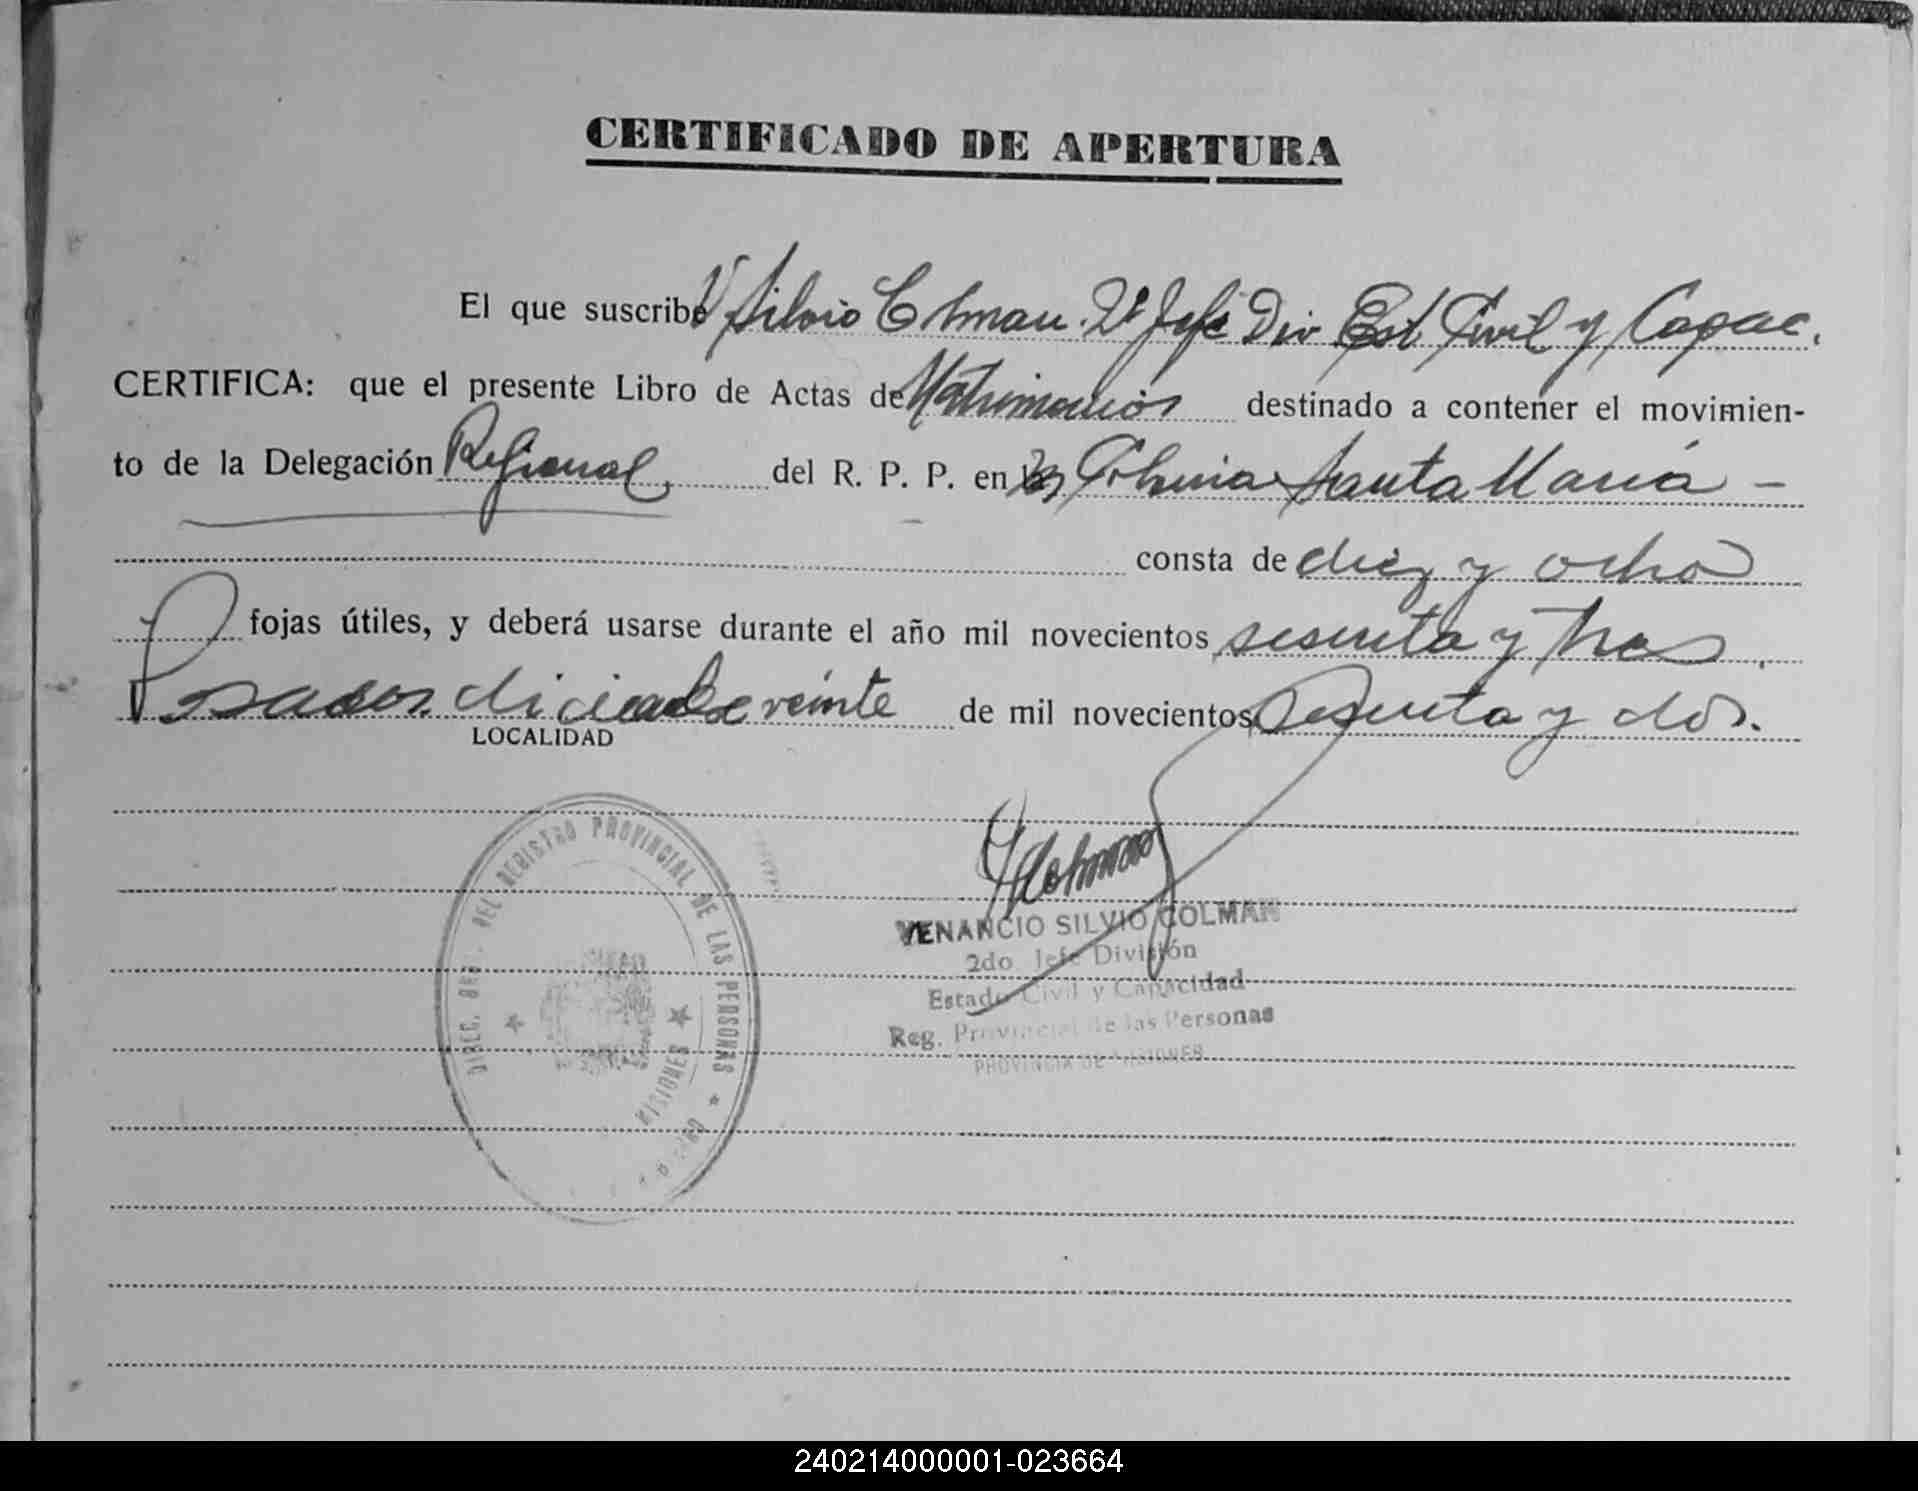 CERTIFICADO DE APERTURA
El que suscribe V Silvio Colman. 2º Jefe Div Est Civil y Capac.
CERTIFICA: que el presente Libro de Actas de Matrimonios destinado a contener el movimien-
to de la Delegación Regional del R. P. P. en Colonia Santa María -
consta de diez y ocho
fojas útiles, y deberá usarse durante el año mil novecientos sesenta y tres
Posadas, diciembre veinte de mil novecientos sesenta y dos.
LOCALIDAD
DIREC. GRAL. DEL REGISTRO PROVINCIAL DE LAS PERSONAS
MISIONES
VColman
VENANCIO SILVIO COLMAN
2do Jefe División
Estado Civil y Capacidad
Reg. Provincial de las Personas
PROVINCIA DE MISIONES
240214000001-023664